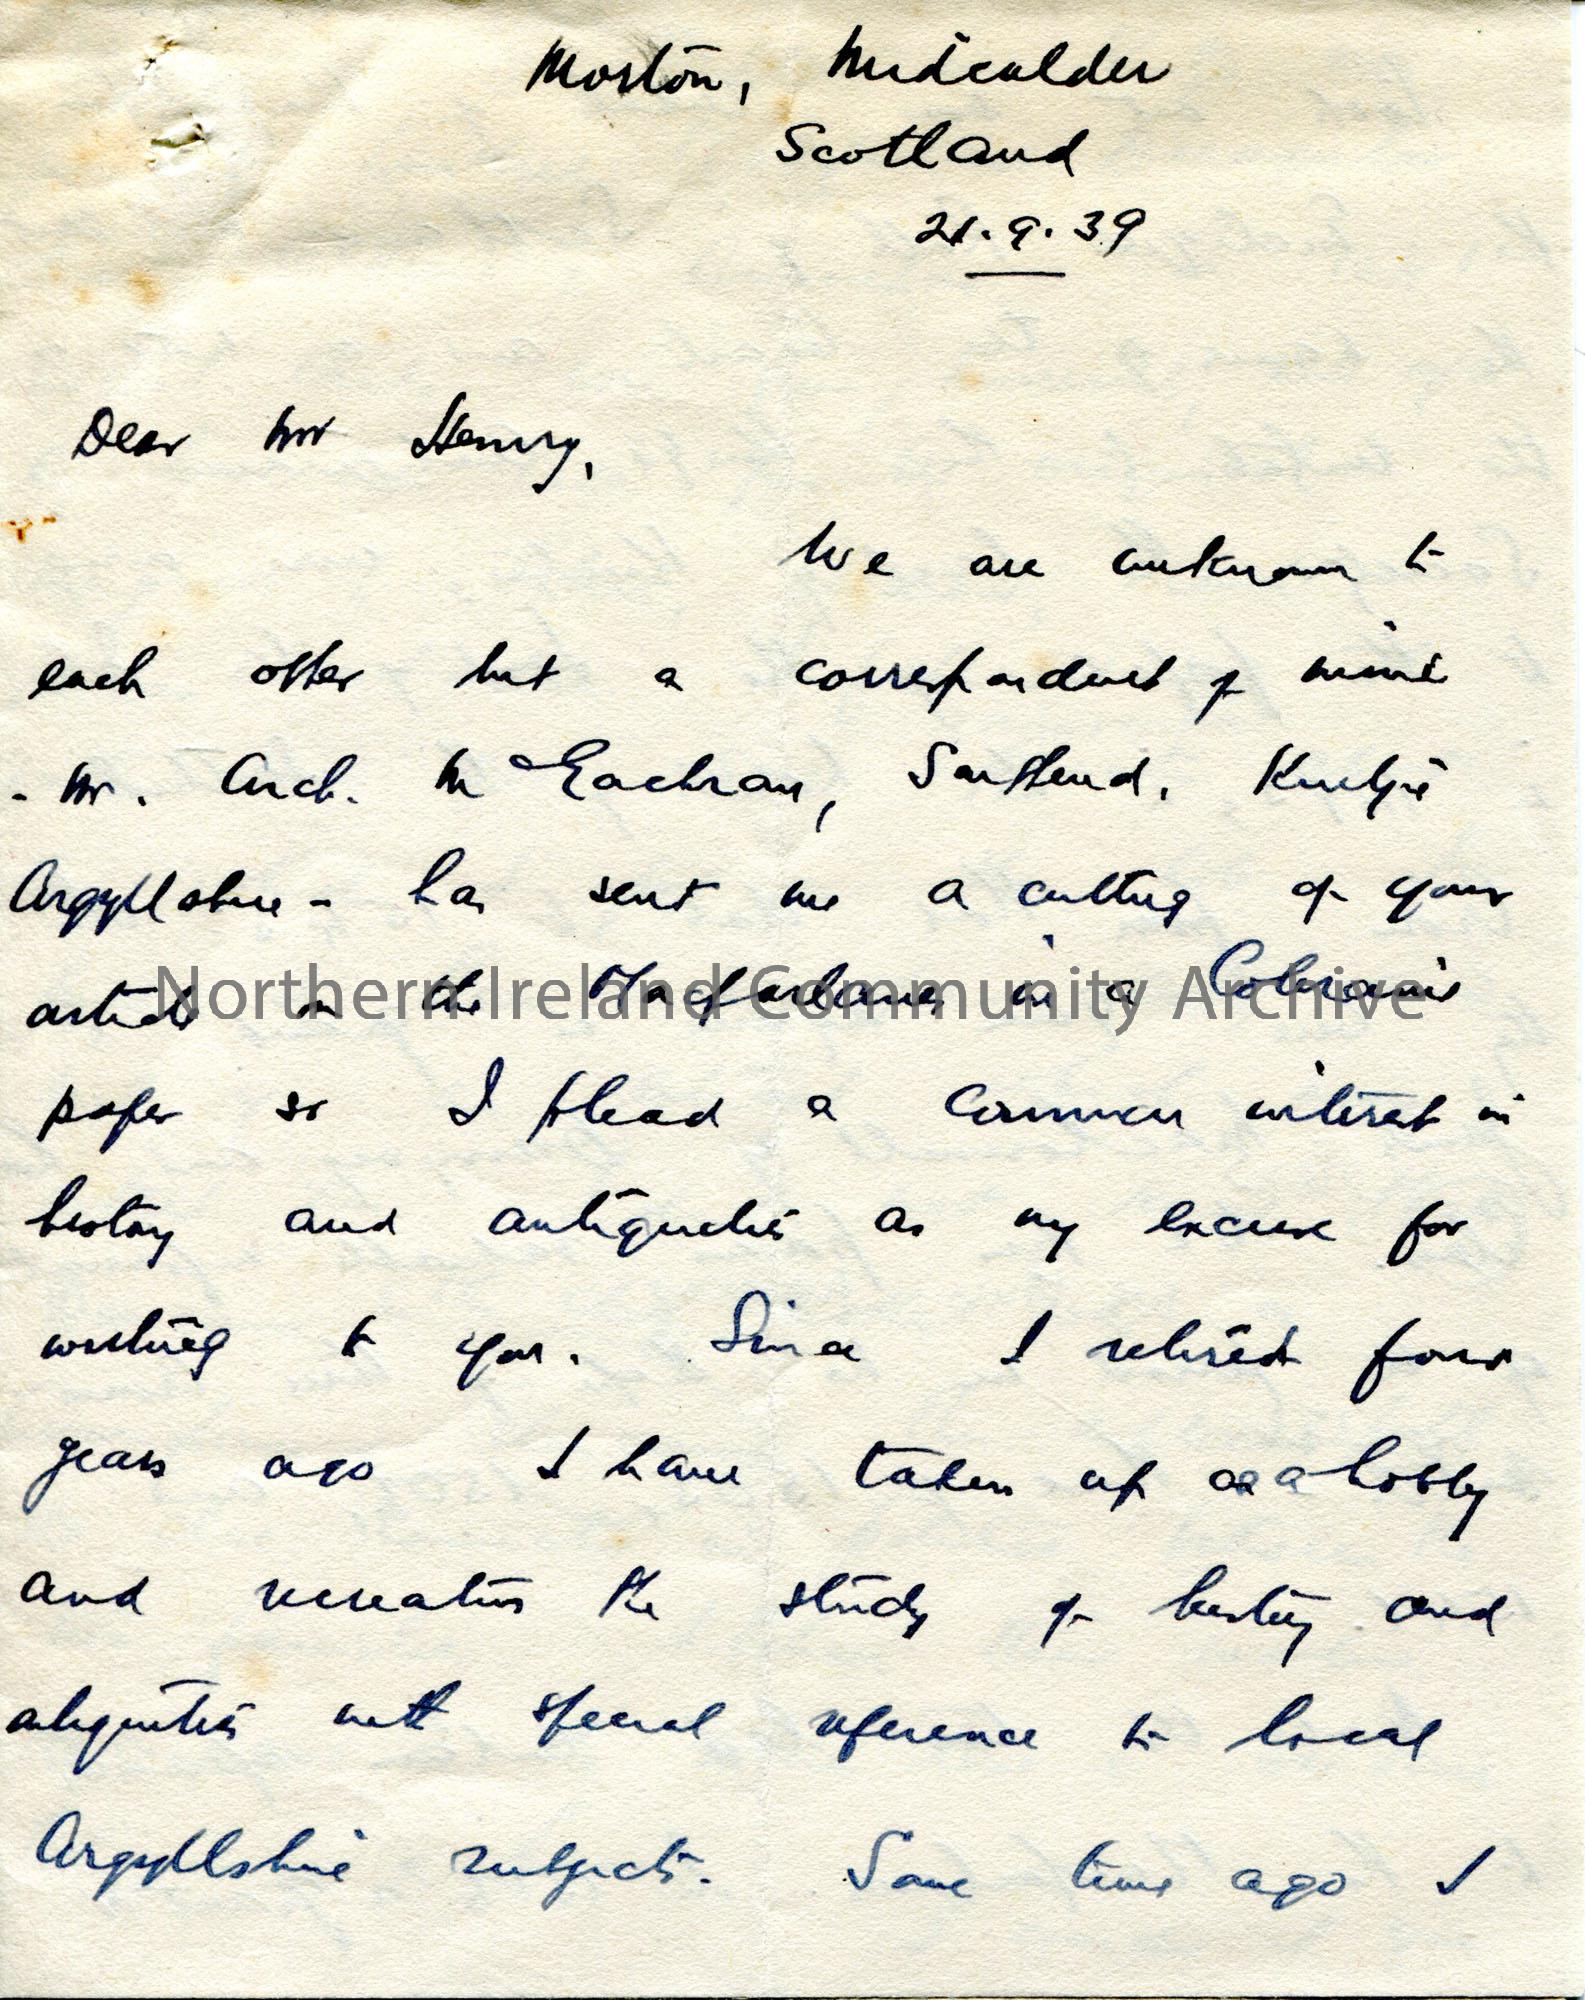 Morton, Midcalder
Scotland
21.9.39
Dear Mr Henry,
We are unknown to
each other but a correspondent of mine
- Mr. Arch. McEachran, Southend,
Argyllshire - has sent me a cutting of your
article on the Macfarlanes in a Coleraine
paper so I plead a common interest in
history and antiquities as my excuse for
writing to you. Since I retired four
years ago I have taken up as a hobby
and recreation the study of history and
antiquities with special reference to local
Argyllshire subjects. Some time ago I
Northern Ireland Community Archive